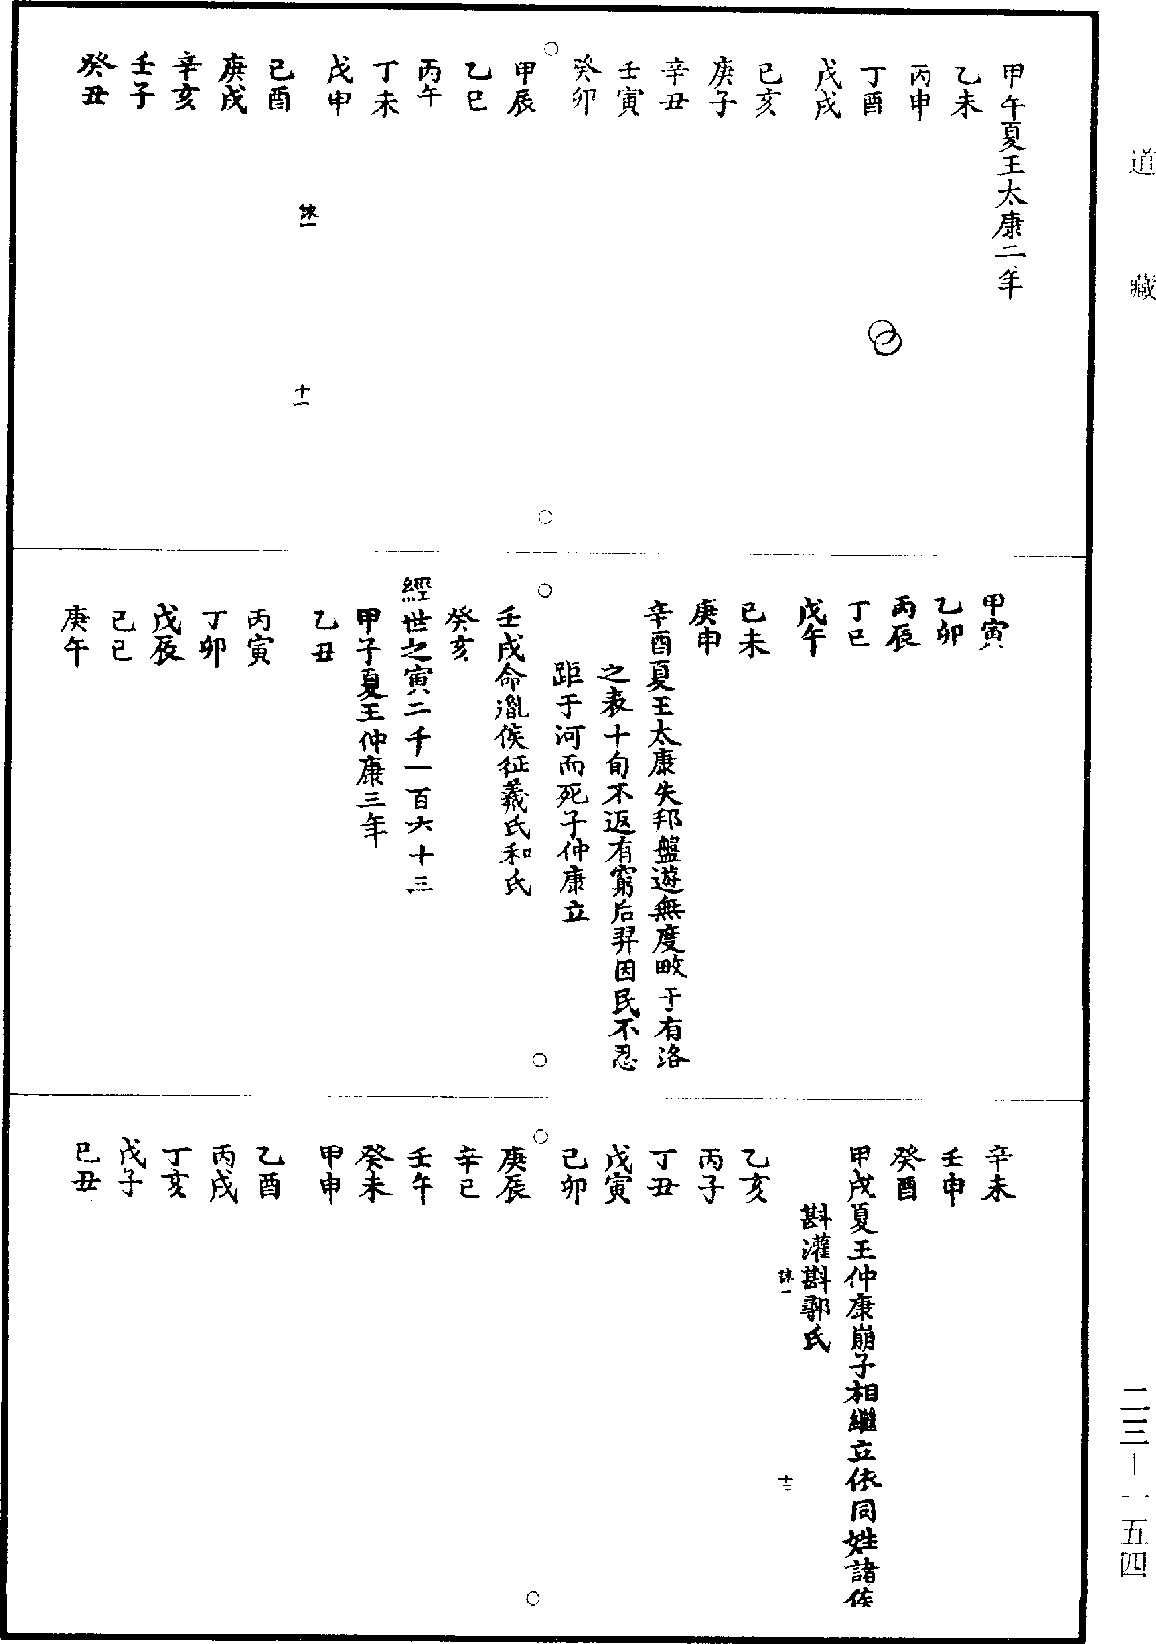 道藏
甲午夏王太康二年
乙未
丙申
丁酉
戊戌
己亥
庚子
辛丑
壬寅
癸卯
甲辰
乙巳
丙午
丁未
戊申
十一
己酉
庚戌
辛亥
壬子
癸丑
甲寅
乙卯
丙辰
丁巳
戊午
己未
庚申
辛酉夏王太康失邦盤遊無度畋于有洛
之表十旬不返有窮后羿因民不忍
距于河而死子仲康立
壬戌命胤侯征羲氏和氏
癸亥
經世之寅二千一百六十三
甲子夏王仲康三年
乙丑
丙寅
丁卯
戊辰
己巳
庚午
辛未
壬申
癸酉
甲戌夏王仲康崩子相繼立依同姓諸侯
斟灌斟鄩氏
十二
乙亥
丙子
丁丑
戊寅
己卯
庚辰
辛巳
壬午
癸未
甲申
乙酉
丙戌
丁亥
戊子
己丑
二三—一五四